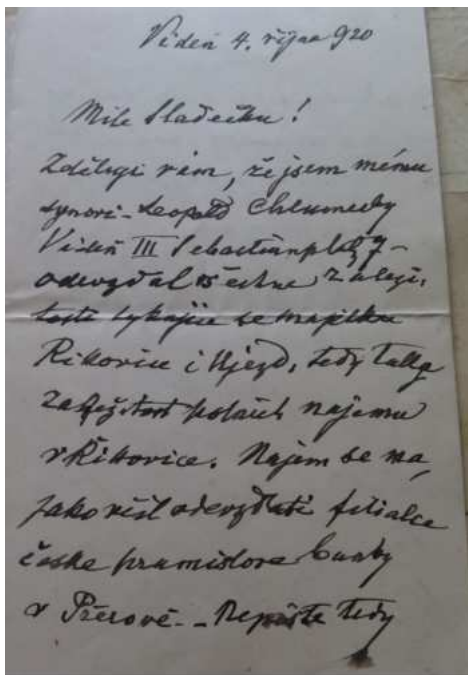 Videň 4. října 920
Mile Sladečku!
Zděluji vám, že jsem mému
synovi - Leopold Chlumecky
Videň III Sebastianplatz 7 -
odevzdal všechne zaleži,
tosti tykajíce se majetku
Rikovice i Ujezd, tedy take
zaležitost polních najemu
v Řikovice. Najem se ma,
jako vždy odevzdati filialce
česke prumislove banky
v Přerově. - Nepište tedy